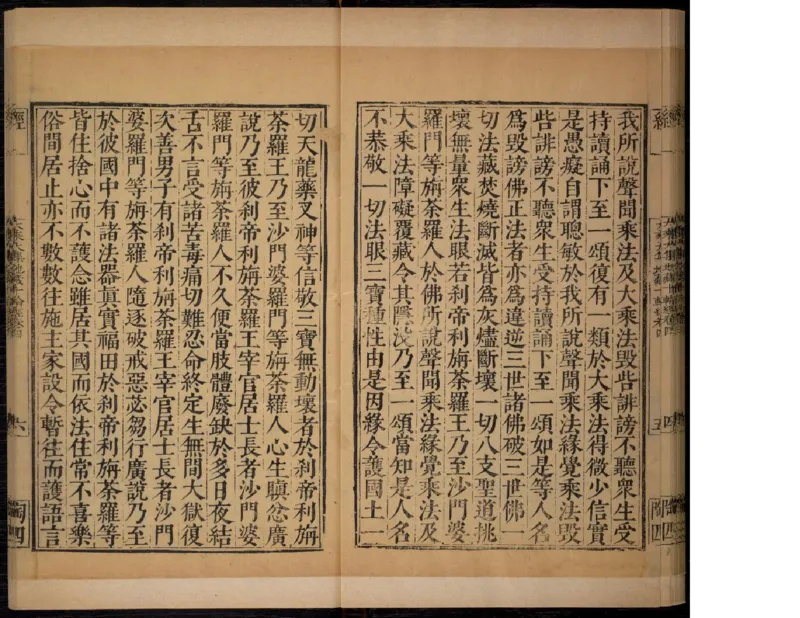 我所說聲聞乘法及大乘法毀呰誹謗不聽衆生受
持讀誦下至一頌復有一類於大乘法得微少信實
是愚癡自謂聰敏於我所說聲聞乘法緣覺乘法毀
呰誹謗不聽衆生受持讀誦下至一頌如是等人名
爲毀謗佛正法者亦爲違逆三世諸佛破三世佛一
切法藏焚燒斷滅皆爲灰燼斷壞一切八支聖道挑
壞無量衆生法眼若刹帝利旃荼羅王乃至沙門婆
羅門等旃荼羅人於佛所說聲聞乘法緣覺乘法及
大乘法障礙覆藏令其隱沒乃至一頌當知是人名
不恭敬一切法眼三寶種性由是因緣令護國土一
切天龍藥叉神等信敬三寶無動壞者於刹帝利旃
荼羅王乃至沙門婆羅門等旃荼羅人心生瞋忿廣
說乃至彼刹帝利旃荼羅王宰官居士長者沙門婆
羅門等旃荼羅人不久便當肢體廢缺於多日夜結
舌不言受諸苦毒痛切難忍命終定生無間大獄復
次善男子有刹帝利旃荼羅王宰官居士長者沙門
婆羅門等旃荼羅人隨逐破戒惡苾芻行廣說乃至
於彼國中有諸法器眞實福田於刹帝利旃荼羅等
皆住捨心而不護念雖居其國而依法住常不喜樂
俗間居止亦不數數往施主家設令暫往而護語言